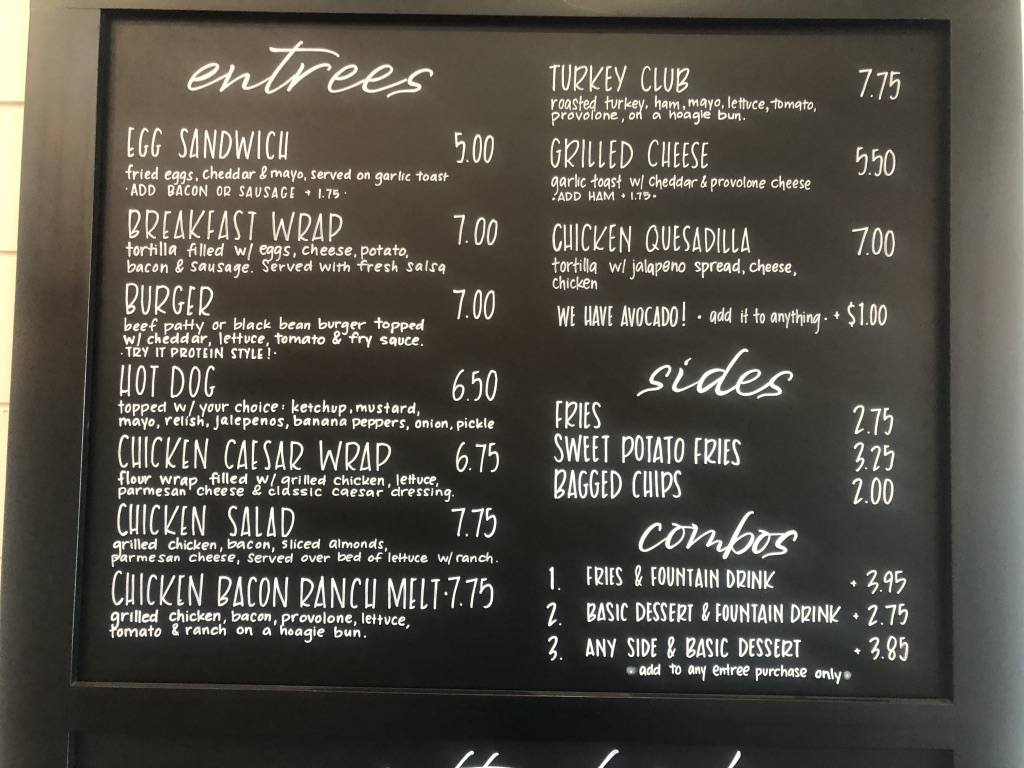 entrees
EGG SANDWICH 5.00
fried eggs, cheddar & mayo, served on garlic toast
·ADD BACON OR SAUSAGE + 1.75·
BREAKFAST WRAP 7.00
tortilla filled w/ eggs, cheese, potato,
bacon & sausage. Served with fresh salsa
BURGER 7.00
beef patty or black bean burger topped
w/ cheddar, lettuce, tomato & fry sauce.
·TRY IT PROTEIN STYLE!·
HOT DOG 6.50
topped w/ your choice: ketchup, mustard,
mayo, relish, jalepenos, banana peppers, onion, pickle
CHICKEN CAESAR WRAP 6.75
flour wrap filled w/ grilled chicken, lettuce,
parmesan cheese & classic caesar dressing.
CHICKEN SALAD 7.75
grilled chicken, bacon, sliced almonds,
parmesan cheese, served over bed of lettuce w/ ranch.
CHICKEN BACON RANCH MELT·7.75
grilled chicken, bacon, provolone, lettuce,
tomato & ranch on a hoagie bun.
TURKEY CLUB 7.75
roasted turkey, ham, mayo, lettuce, tomato,
provolone, on a hoagie bun.
GRILLED CHEESE 5.50
garlic toast w/ cheddar & provolone cheese
·ADD HAM + 1.75·
CHICKEN QUESADILLA 7.00
tortilla w/ jalapeno spread, cheese,
chicken
WE HAVE AVOCADO! · add it to anything · + $1.00
sides
FRIES 2.75
SWEET POTATO FRIES 3.25
BAGGED CHIPS 2.00
combos
1. FRIES & FOUNTAIN DRINK + 3.95
2. BASIC DESSERT & FOUNTAIN DRINK + 2.75
3. ANY SIDE & BASIC DESSERT + 3.85
*add to any entree purchase only*